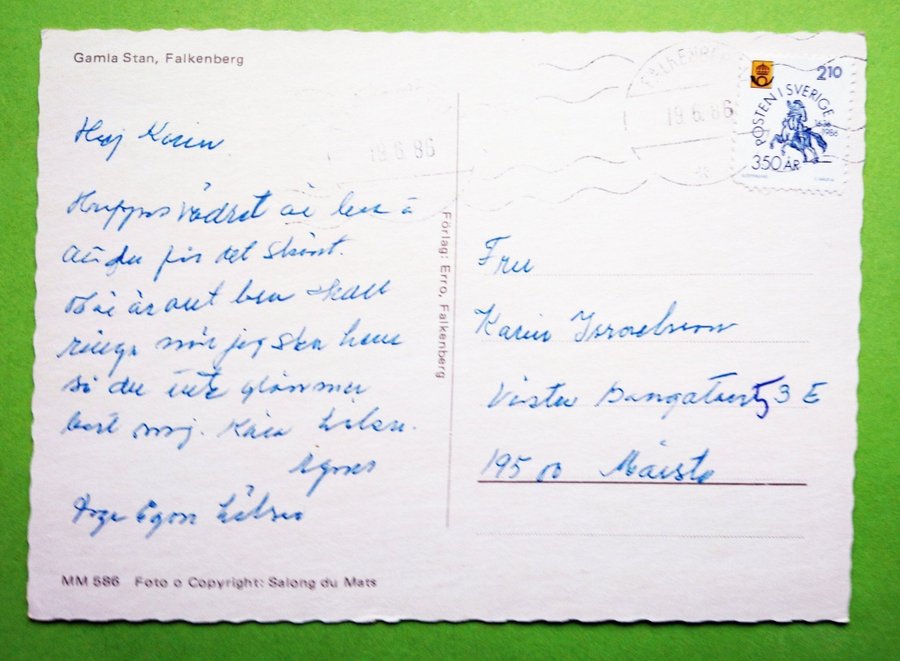 Gamla Stan, Falkenberg
FALKENBERG
19.6.86
19.6.86
210
POSTEN I SVERIGE
1636
1986
350 ÅR
Hej Karin
Hoppas vädret är bra
du får det skönt.
är bra skall
ringa när jag ska hem
så du inte glömmer
bort mig. Kära hälsn.
Agnes
Egon hälsar
Förlag: Erro, Falkenberg
Fru
Karin Israelsson
Västra Bangatan 3 E
195 00 Märsta
MM 586 Foto o Copyright: Salong du Mats